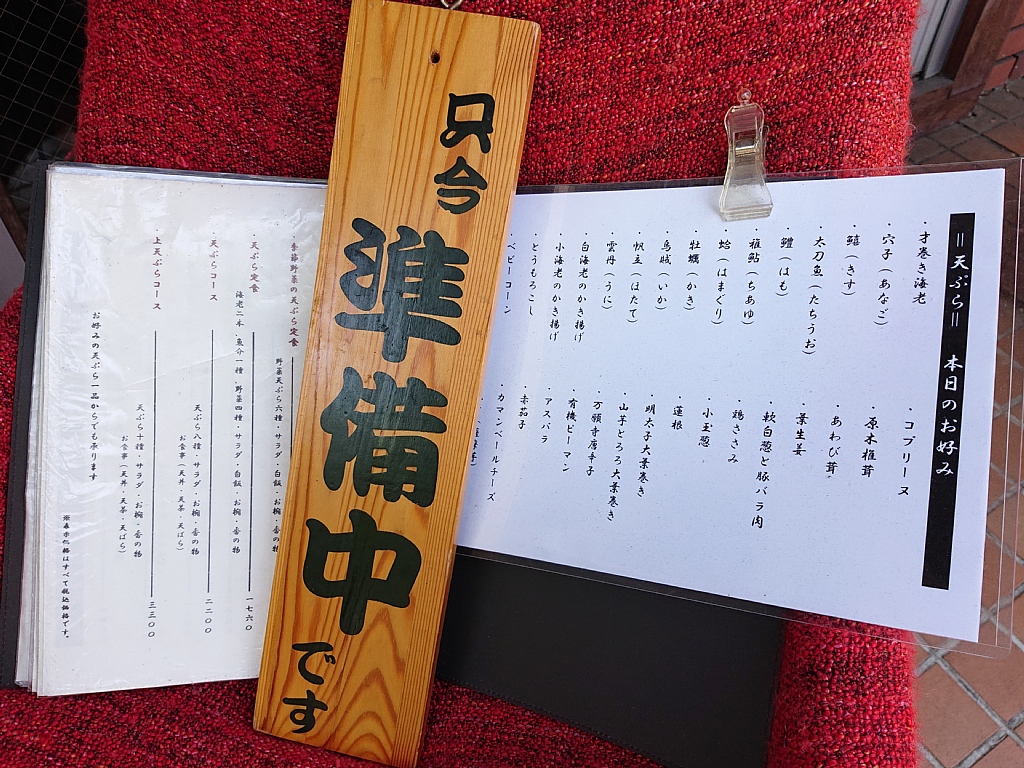 只今
準備中
です
=天ぷら= 本日のお好み
・才巻き海老
・穴子(あなご)
・鱚(きす)
・太刀魚(たちうお)
・鱧(はも)
・稚鮎(ちあゆ)
・蛤(はまぐり)
・牡蠣(かき)
・烏賊(いか)
・帆立(はたて)
・雲丹(うに)
・白海老のかき揚げ
・小海老のかき揚げ
・とうもろこし
ベビーコーン
・コプリーヌ
・原木椎茸
・あわび茸
・葉生姜
・軟白葱と豚バラ肉
・鶏ささみ
・小玉葱
・蓮根
・明太子大葉巻き
・山芋とろろ大葉巻き
・万願寺唐辛子
・有機ピーマン
・アスパラ
・赤茄子
・カマンベールチーズ
季節野菜の天ぷら定食
野菜天ぷら六種・サラダ・白飯・お椀・香の物
・天ぷら定食 一七六〇
海老二本・魚介一種・野菜四種・サラダ・白飯・お椀・香の物
・天ぷらコース 二二〇〇
天ぷら八種・サラダ・お椀・香の物
お食事(天丼・天茶・天ばら)
・上天ぷらコース 三三〇〇
天ぷら十種・サラダ・お椀・香の物
お食事(天丼・天茶・天ばら)
お好みの天ぷら一品からでも承ります
※表示価格はすべて税込価格です。